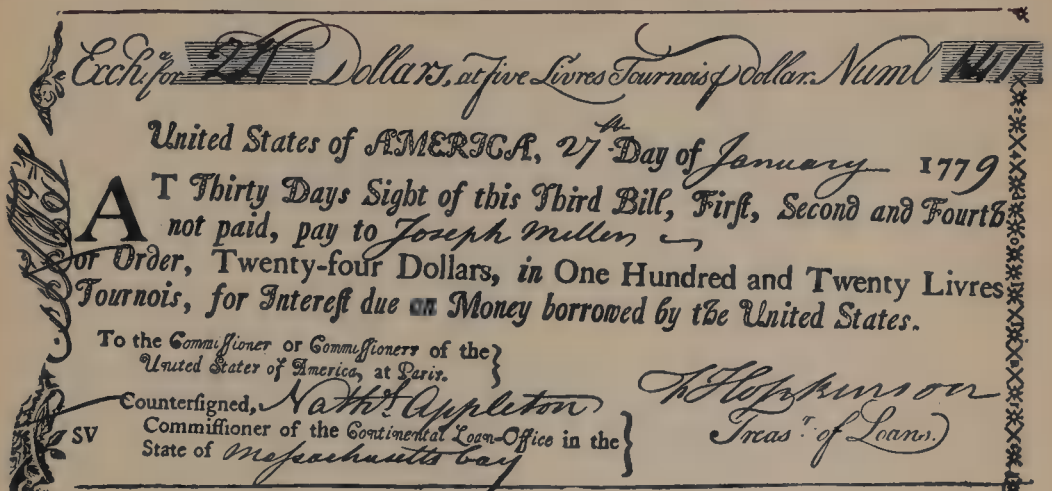 Exch. for 24 Dollars, at five Livres Tournois ⅌ Dollar. Numb. 141
United States of AMERICA, 27th Day of January 1779
AT Thirty Days Sight of this Third Bill, Firſt, Second and Fourth
not paid, pay to Joseph Miller
or Order, Twenty-four Dollars, in One Hundred and Twenty Livres
Tournois, for Intereſt due on Money borrowed by the United States.
To the Commiſſioner or Commiſſioners of the
United States of America, at Paris.
Counterſigned, Nathl. Appleton
Commiſſioner of the Continental Loan-Office in the
State of Maſsachusetts bay
SV
F Hopkinson
Treasr. of Loans.